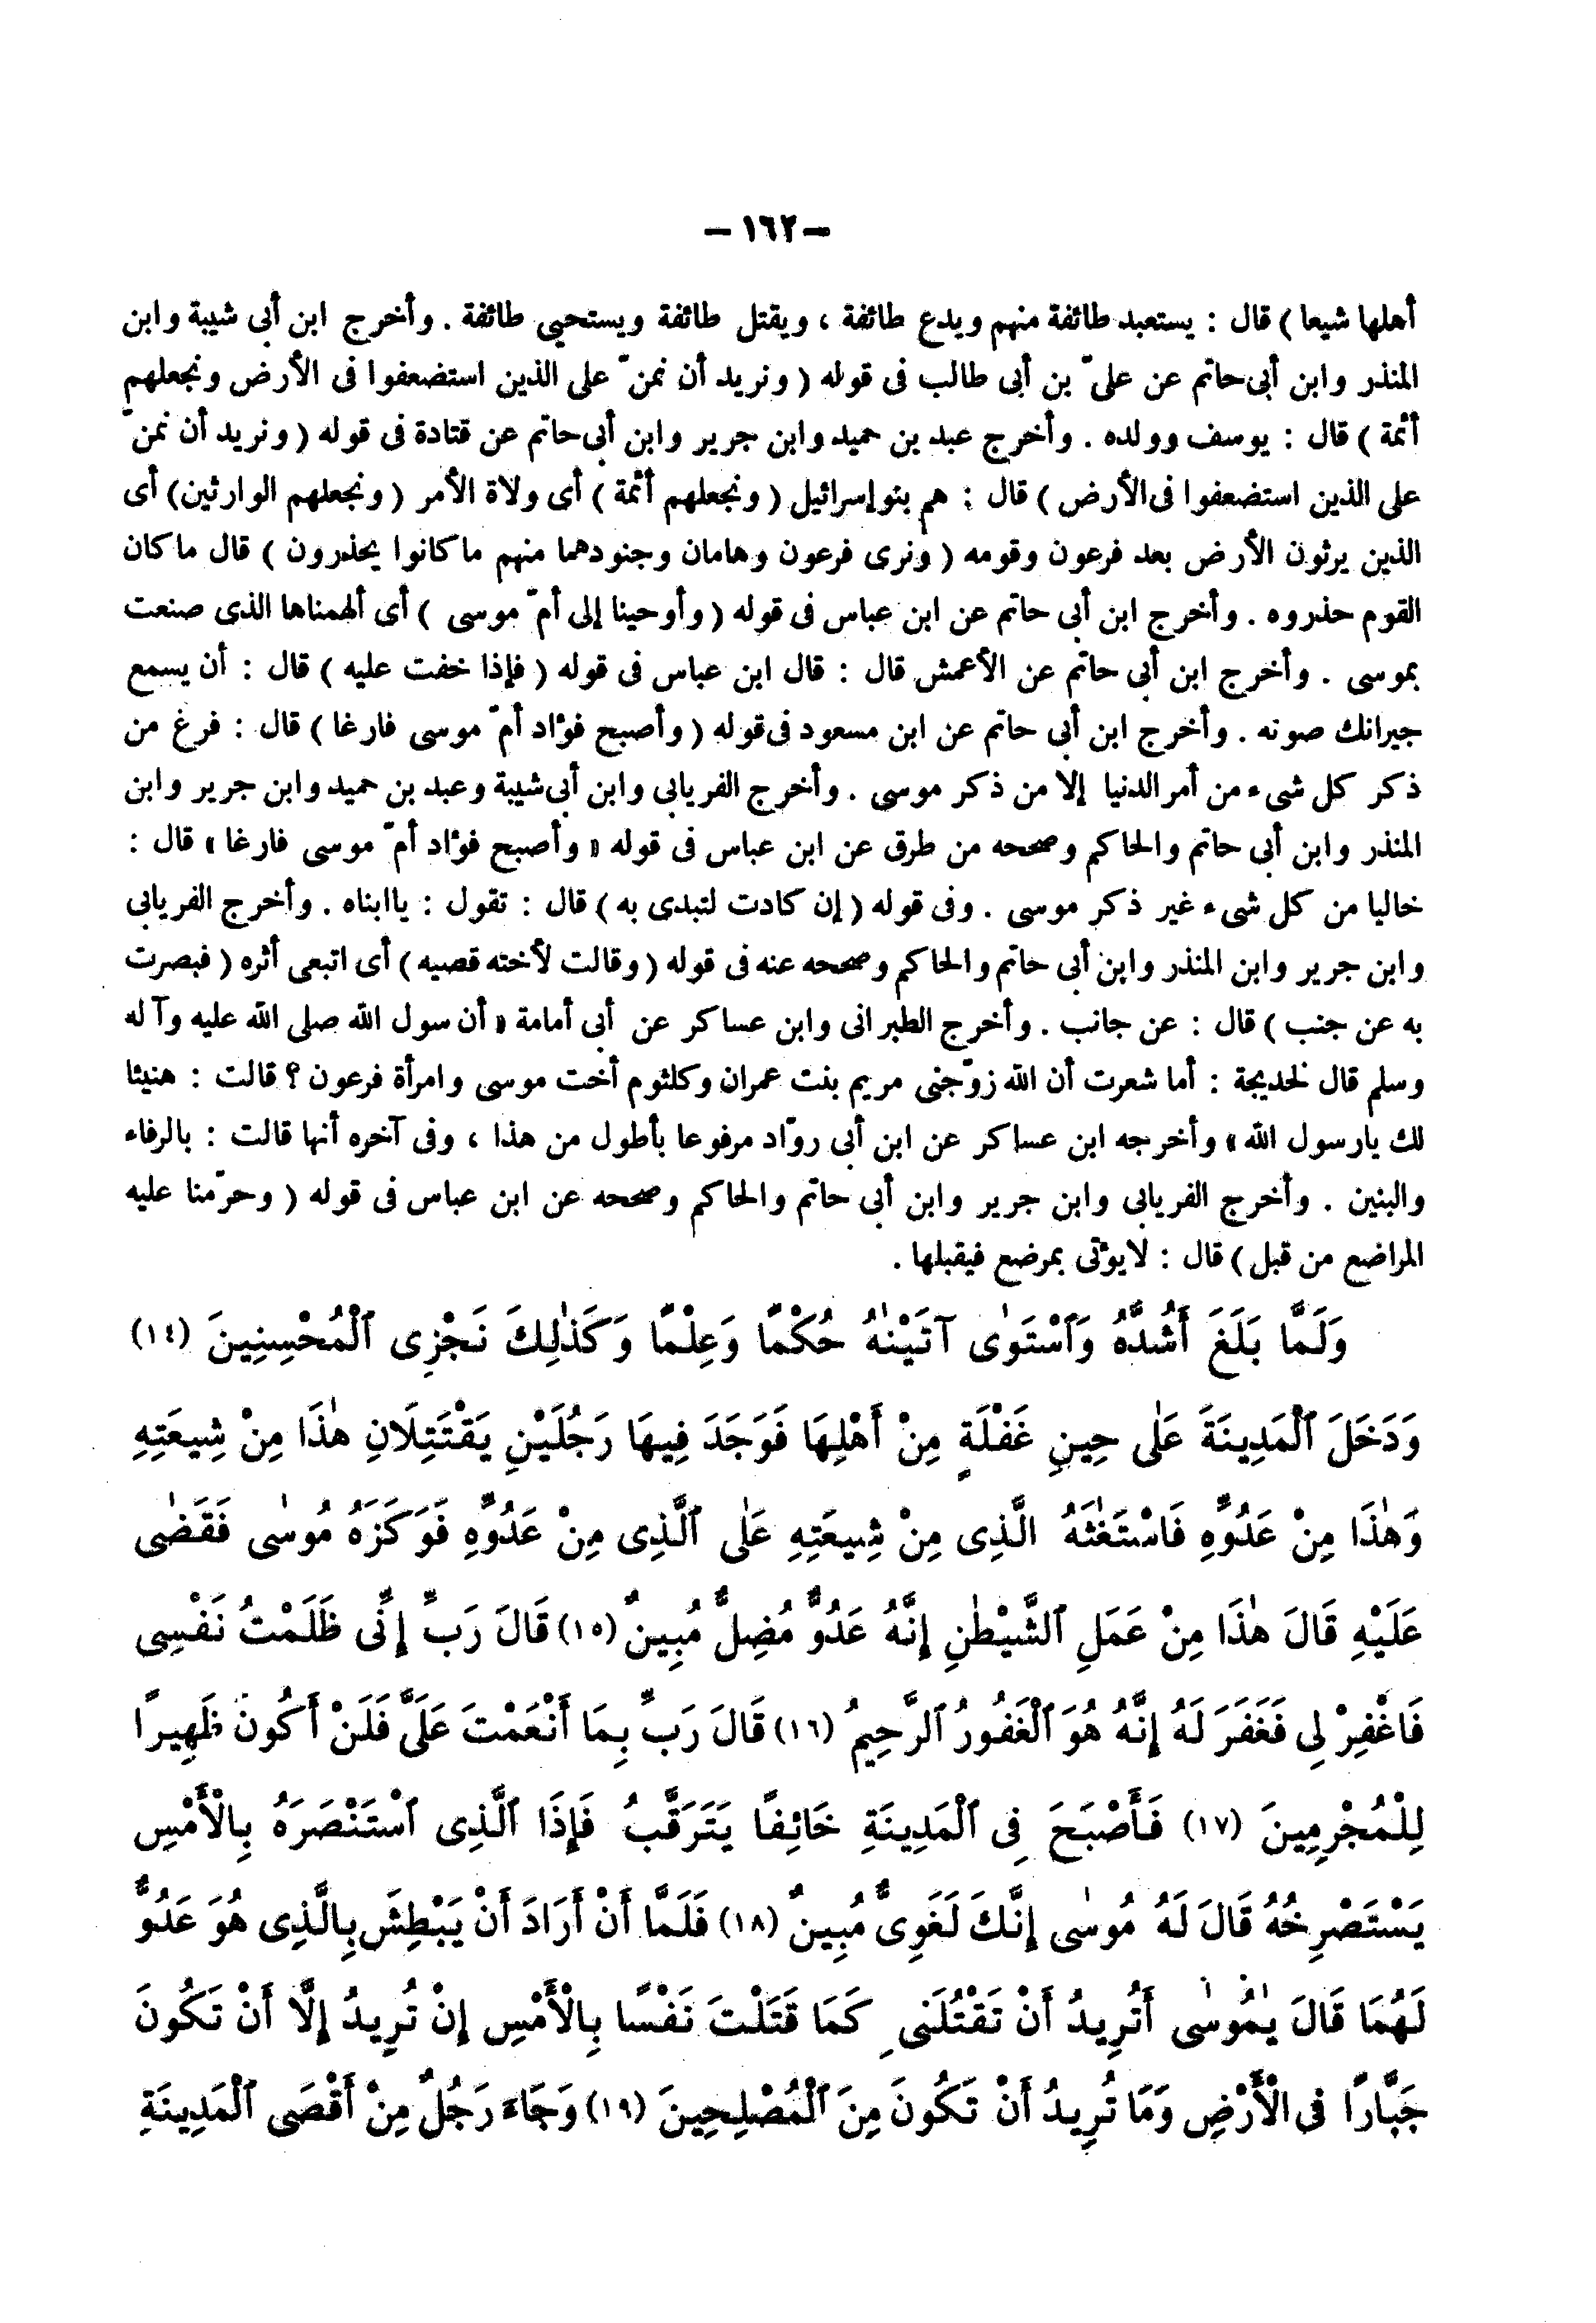 — ١٦٢ —
أهلها شيعا ) قال : يستعبد طائفة منهم ويدع طائفة ، ويقتل طائفة ويستحيى طائفة . وأخرج ابن أبى شيبة وابن
المنذر وابن أبى حاتم عن علىّ بن أبى طالب فى قوله ( ونريد أن نمنّ على الذين استضعفوا فى الأرض ونجعلهم
أئمة ) قال : يوسف وولده . وأخرج عبد بن حميد وابن جرير وابن أبى حاتم عن قتادة فى قوله ( ونريد أن نمنّ
على الذين استضعفوا فى الأرض ) قال : هم بنو إسرائيل ( ونجعلهم أئمة ) أى ولاة الأمر ( ونجعلهم الوارثين) أى
الذين يرثون الأرض بعد فرعون وقومه ( ونرى فرعون وهامان وجنودهما منهم ما كانوا يحذرون ) قال ما كان
القوم حذروه . وأخرج ابن أبى حاتم عن ابن عباس فى قوله ( وأوحينا إلى أمّ موسى ) أى ألهمناها الذى صنعت
بموسى . وأخرج ابن أبى حاتم عن الأعمش قال : قال ابن عباس فى قوله ( فإذا خفت عليه ) قال : أن يسمع
جيرانك صوته . وأخرج ابن أبى حاتم عن ابن مسعود فى قوله ( وأصبح فؤاد أمّ موسى فارغا ) قال : فرغ من
ذكر كل شىء من أمر الدنيا إلا من ذكر موسى . وأخرج الفريابى وابن أبى شيبة وعبد بن حميد وابن جرير وابن
المنذر وابن أبى حاتم والحاكم وصححه من طرق عن ابن عباس فى قوله « وأصبح فؤاد أمّ موسى فارغا » قال :
خاليا من كل شىء غير ذكر موسى . وفى قوله ( إن كادت لتبدى به ) قال : تقول : ياابناه . وأخرج الفريابى
وابن جرير وابن المنذر وابن أبى حاتم والحاكم وصححه عنه فى قوله ( وقالت لأخته قصيه ) أى اتبعى أثره ( فبصرت
به عن جنب ) قال : عن جانب . وأخرج الطبرانى وابن عساكر عن أبى أمامة « أن سول الله صلى الله عليه وآله
وسلم قال لخديجة : أما شعرت أن الله زوّجنى مريم بنت عمران وكلثوم أخت موسى وامرأة فرعون ؟ قالت : هنيئا
لك يارسول الله » وأخرجه ابن عساكر عن ابن أبى روّاد مرفوعا بأطول من هذا ، وفى آخره أنها قالت : بالرفاء
والبنين . وأخرج الفريابى وابن جرير وابن أبى حاتم والحاكم وصححه عن ابن عباس فى قوله ( وحرّمنا عليه
المراضع من قبل ) قال : لايؤتى بمرضع فيقبلها .
وَلَمَّا بَلَغَ أَشُدَّهُ وَٱسْتَوٰى آتَيْنٰهُ حُكْمًا وَعِلْمًا وَكَذٰلِكَ نَجْزِى ٱلْمُحْسِنِينَ (١٤)
وَدَخَلَ ٱلْمَدِينَةَ عَلٰى حِينِ غَفْلَةٍ مِنْ أَهْلِهَا فَوَجَدَ فِيهَا رَجُلَيْنِ يَقْتَتِلَانِ هٰذَا مِنْ شِيعَتِهِ
وَهٰذَا مِنْ عَدُوِّهِ فَاسْتَغٰثَهُ الَّذِى مِنْ شِيعَتِهِ عَلٰى ٱلَّذِى مِنْ عَدُوِّهِ فَوَكَزَهُ مُوسٰى فَقَضٰى
عَلَيْهِ قَالَ هٰذَا مِنْ عَمَلِ ٱلشَّيْطٰنِ إِنَّهُ عَدُوٌّ مُضِلٌّ مُبِينٌ (١٥) قَالَ رَبِّ إِنِّى ظَلَمْتُ نَفْسِى
فَاغْفِرْ لِى فَغَفَرَ لَهُ إِنَّهُ هُوَ ٱلْغَفُورُ ٱلرَّحِيمُ (١٦) قَالَ رَبِّ بِمَا أَنْعَمْتَ عَلَىَّ فَلَنْ أَكُونَ ظَهِيرًا
لِلْمُجْرِمِينَ (١٧) فَأَصْبَحَ فِى ٱلْمَدِينَةِ خَائِفًا يَتَرَقَّبُ فَإِذَا ٱلَّذِى ٱسْتَنْصَرَهُ بِالْأَمْسِ
يَسْتَصْرِخُهُ قَالَ لَهُ مُوسٰى إِنَّكَ لَغَوِىٌّ مُبِينٌ (١٨) فَلَمَّا أَنْ أَرَادَ أَنْ يَبْطِشَ بِالَّذِى هُوَ عَدُوٌّ
لَهُمَا قَالَ يٰمُوسٰى أَتُرِيدُ أَنْ تَقْتُلَنِى كَمَا قَتَلْتَ نَفْسًا بِالْأَمْسِ إِنْ تُرِيدُ إِلَّا أَنْ تَكُونَ
جَبَّارًا فِى الْأَرْضِ وَمَا تُرِيدُ أَنْ تَكُونَ مِنَ ٱلْمُصْلِحِينَ (١٩) وَجَاءَ رَجُلٌ مِنْ أَقْصَى ٱلْمَدِينَةِ